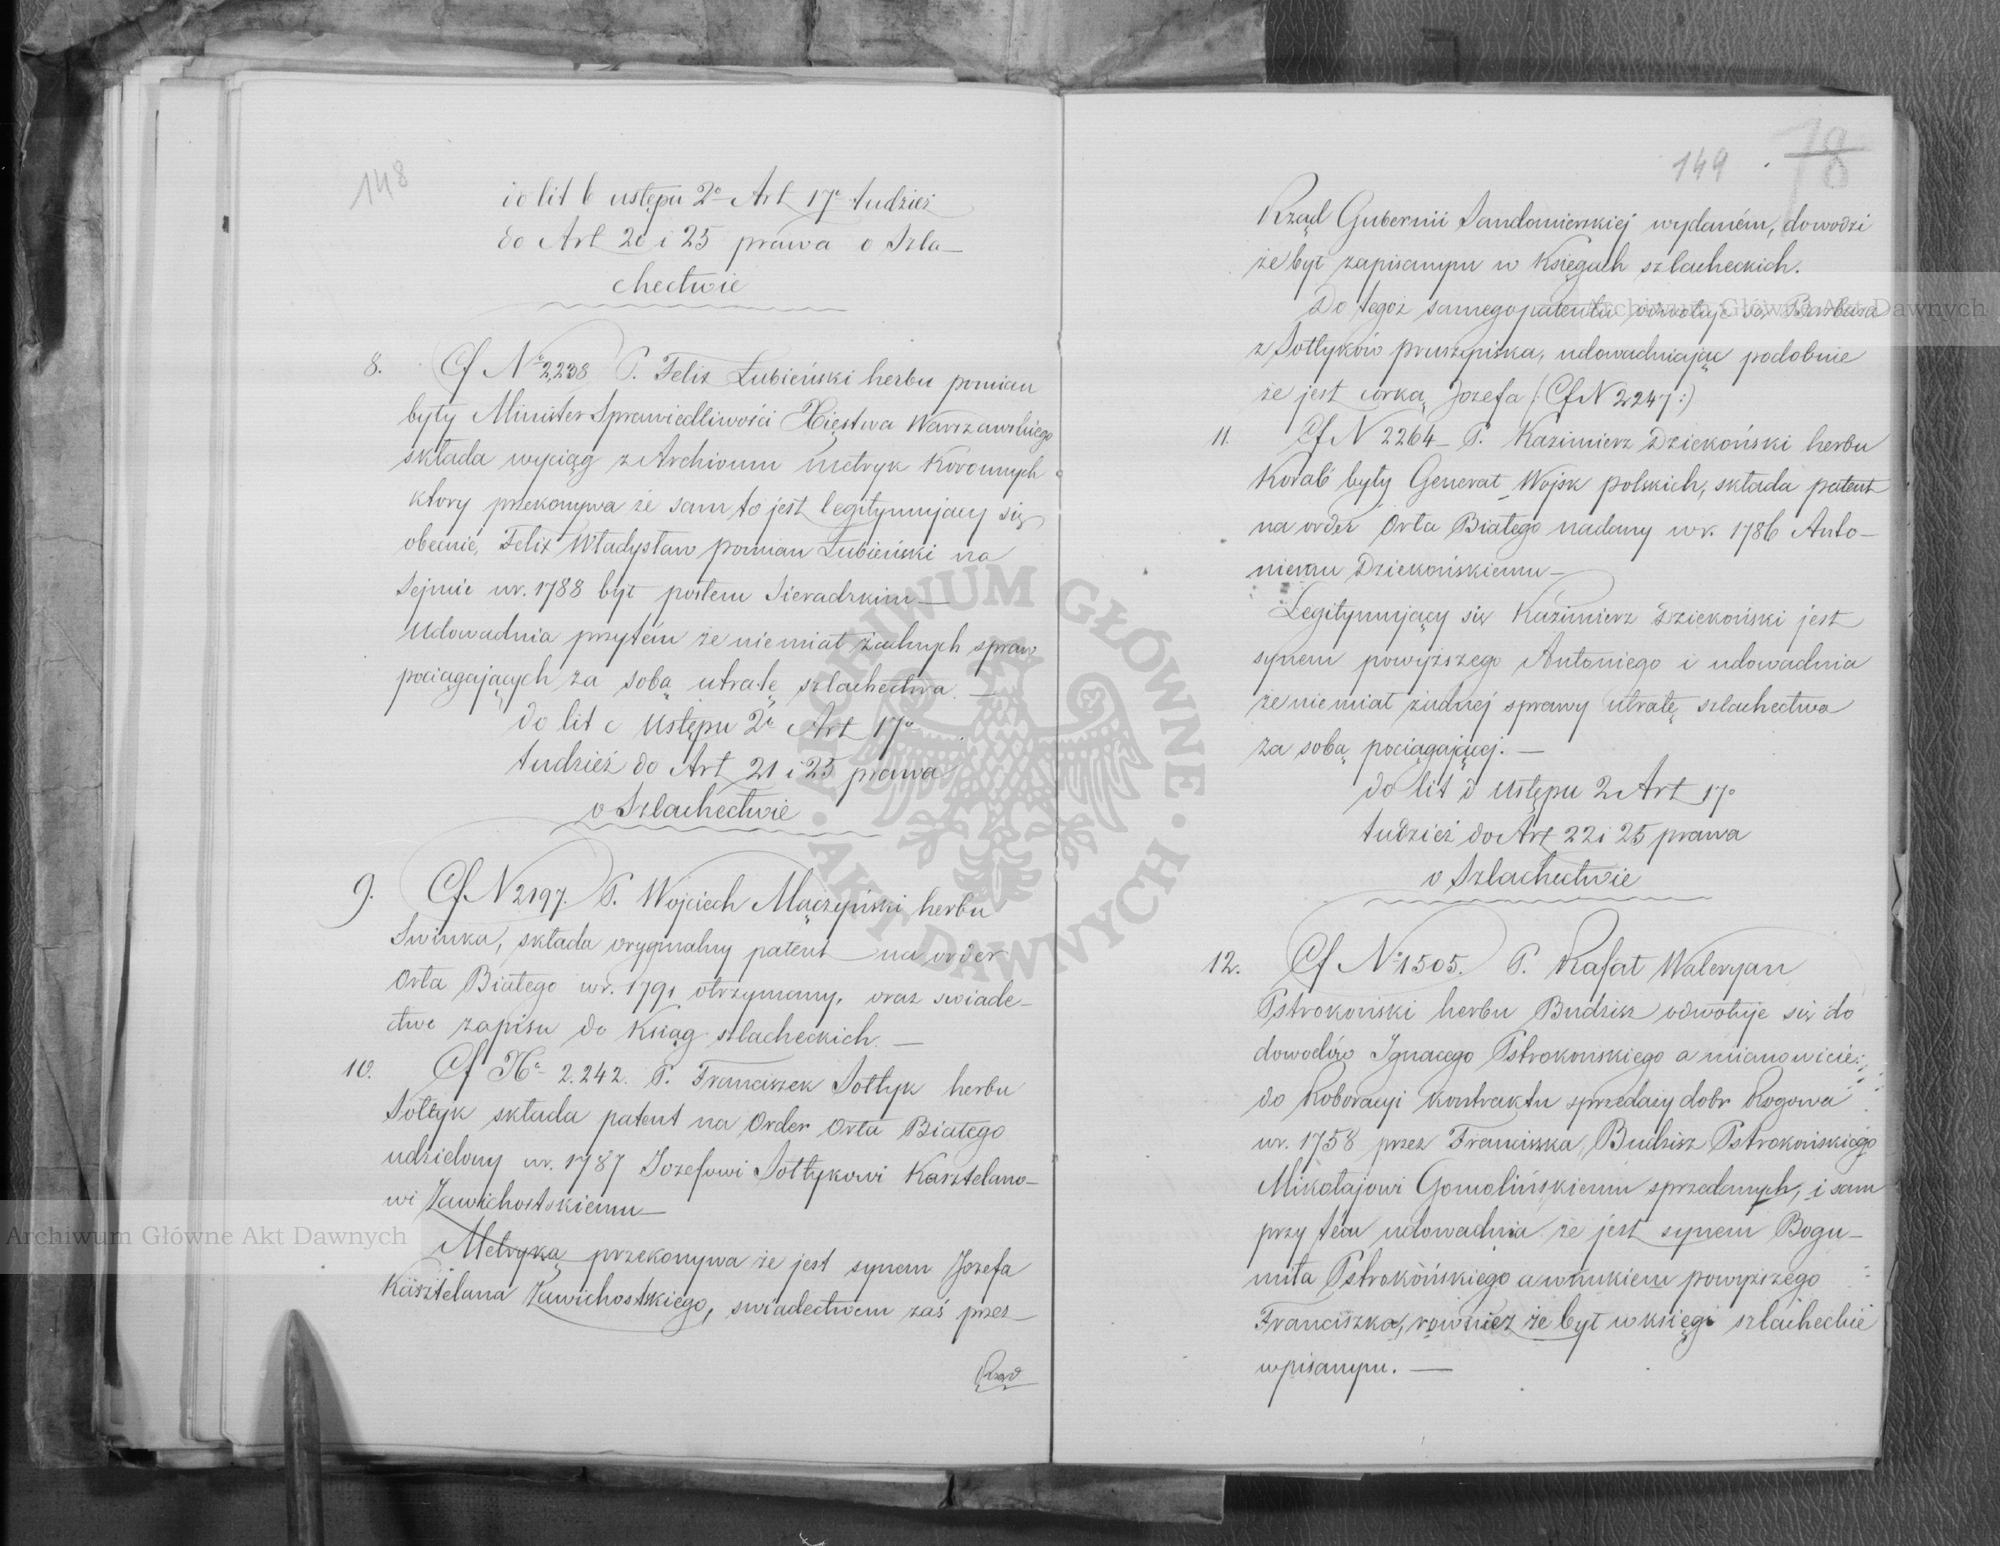 148
do lit b ustępu 2º Art 17º tudzież
do Art 20 i 25 prawa o Szla-
chectwie
8. Cf Nº 2,238 P. Felix Łubieński herbu pomian
były Minister Sprawiedliwości Xięstwa Warszawskiego
składa wyciąg z Archiwum metryk Koronnych
ktory przekonywa że sam to jest legitymujący się
obecnie, Felix Władysław pomian Łubieński na
Sejmie w r. 1788 był posłem Sieradzkim —
Udowadnia przytém że niemiał żadnych spraw
pociągających za sobą utratę szlachectwa. —
do lit c Ustępu 2º Art 17º
tudzież do Art 21 i 25 prawa
o Szlachectwie
9. Cf N 2197. P. Wojciech Mączyński herbu
Swinka, składa oryginalny patent na order
Orła Białego w r. 1791 otrzymany, oraz swiade-
ctwo zapisu do Ksiąg szlacheckich. —
10. Cf Nº 2.242. P. Franciszek Sołtyk herbu
Sołtyk składa patent na Order Orła Białego
udzielony w r. 1787 Jozefowi Sołtykowi Kasztelano-
wi Zawichostskiemu —
Metryką przekonywa że jest synem Jozefa
Kasztelana Zawichostskiego, swiadectwem zaś przez
Rząd
149 78
Rząd Gubernii Sandomierskiej wydaném, dowodzi
że był zapisanym w Księgach szlacheckich.
Do tegoż samego patentu odwołuje się Barbara
z Sołtyków pruszyńska, udowadniając podobnie
że jest córką Jozefa (: Cf N 2247 :)
11. Cf N 2264 - P. Kazimierz Dziekoński herbu
Korab były Generał Wojsk polskich, składa patent
na order Orła Białego nadany w r. 1786 Anto-
niemu Dziekońskiemu —
Legitymujący się Kazimierz Dziekoński jest
synem powyższego Antoniego i udowadnia
że niemiał żadnej sprawy utratę szlachectwa
za sobą pociągającej. —
do lit d Ustępu 2 Art 17º
tudzież do Art 22 i 25 prawa
o Szlachectwie
12. Cf Nº 1505. P. Rafał Waleryan
Pstrokoński herbu Budzisz odwołuje się do
dowodów Ignacego Pstrokońskiego a mianowicie:
do Roboracyi Kontraktu sprzedaży dobr Rogowa
w r. 1758 przez Franciszka Budzisz Pstrokońskiego
Mikołajowi Gomolińskiemu sprzedanych, i sam
przy tém udowadnia że jest synem Bogu-
miła Pstrokońskiego a wnukiem powyższego
Franciszka, rownież że był w księgi szlacheckie
wpisanym. —
Archiwum Główne Akt Dawnych
Archiwum Główne Akt Dawnych
ARCHIWUM GŁÓWNE AKT DAWNYCH